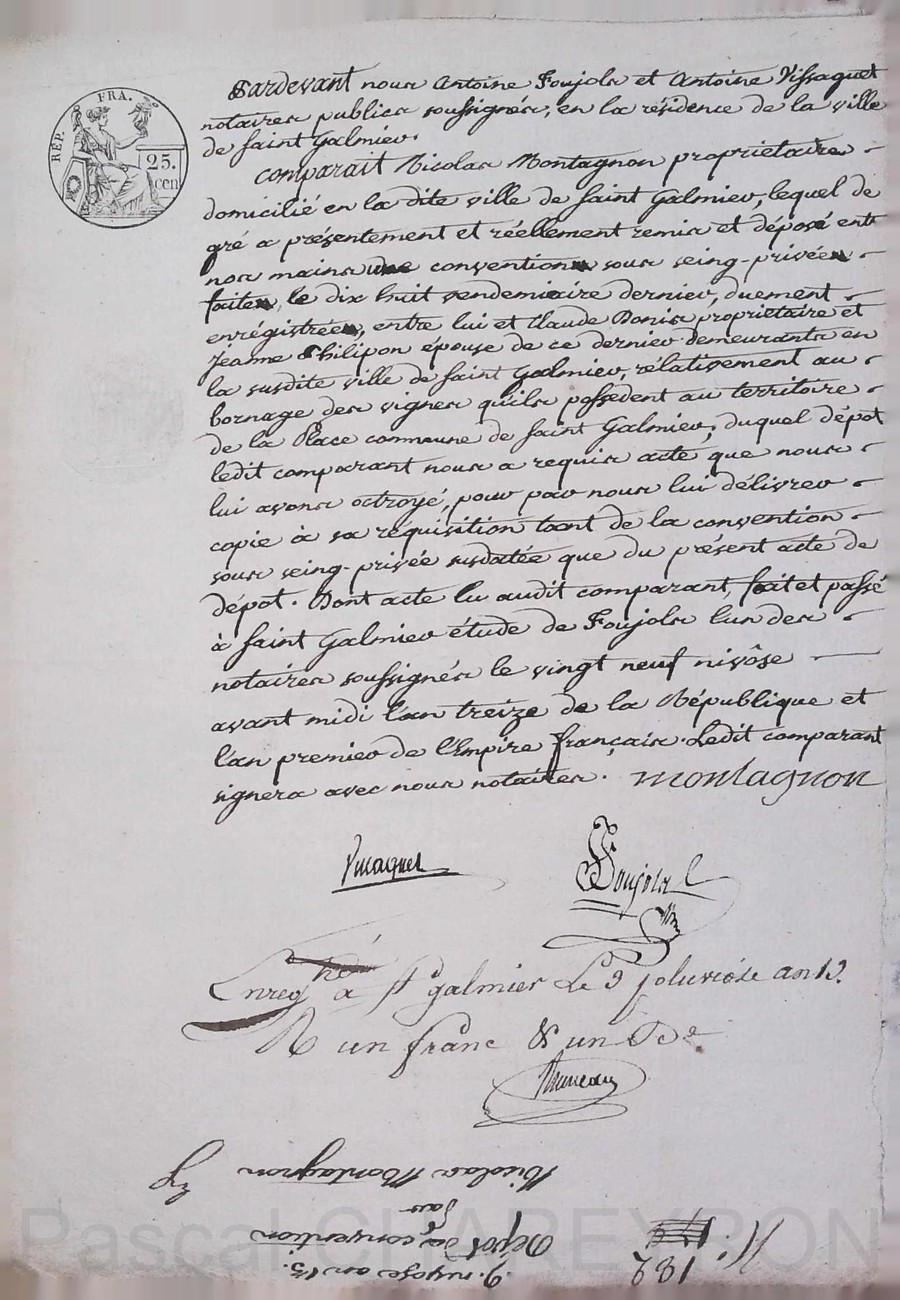 REP. FRA.
25. cen
Pardevant nous Antoine Foujols et Antoine Vissaguet
notaires publics soussignés, en la résidence de la ville
de saint Galmier.
comparait Nicolas Montagnon propriétaire
domicilié en la dite ville de saint Galmier, lequel de
gré a présentement et réellement remis et déposé entre
nos mains une convention sous seing-privée
faite, le dix huit vendemiaire dernier, duement
enrégistrée, entre lui et Claude Donis propriétaire et
Jeanne Philipon épouse de ce dernier demeurants en
la susdite ville de saint Galmier, rélativement au
bornage des vignes qu'ils possèdent au territoire
de la Place commune de saint Galmier, duquel dépot
ledit comparant nous a requis acte, que nous
lui avons octroyé, pour par nous lui délivrer
copie à sa réquisition tant de la convention
sous seing-privée susdatée que du présent acte de
dépot. Dont acte lu audit comparant, fait et passé
à saint Galmier étude de Foujols l'un des
notaires soussignés le vingt neuf nivôse
avant midi l'an treize de la République et
l'an premier de l'Empire français. Ledit comparant
signera avec nous notaires. montagnon
Vissaguet Foujols
Enreg à St galmier Le 9 pluviose an 13.
R un franc & un De
Nicolas Montagnon
par
Dépot de convention
9. nivose an 13.
N. 182
Pascal CHAREYRON